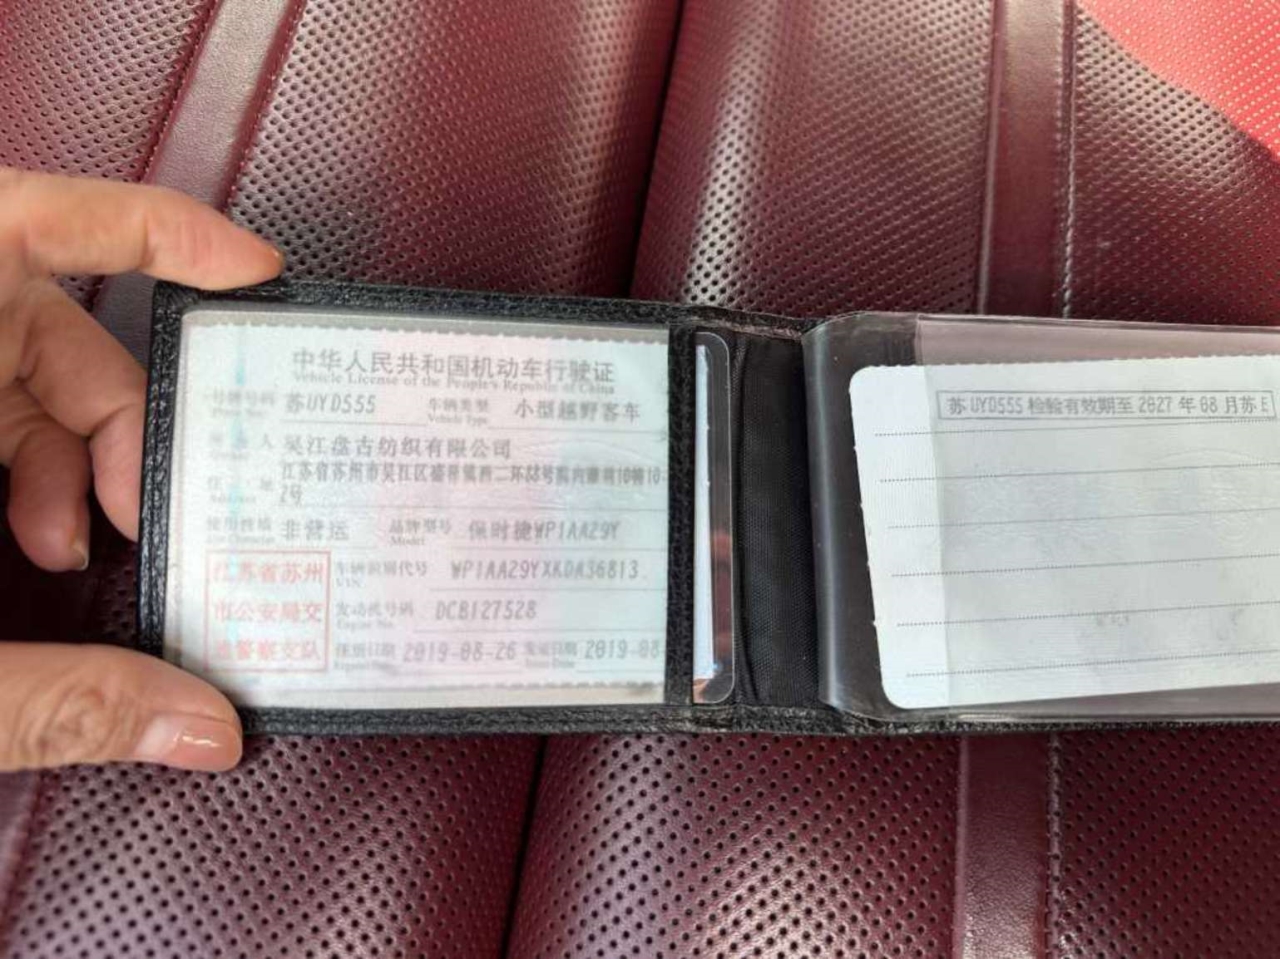 中华人民共和国机动车行驶证
Vehicle License of the People's Republic of China
号牌号码 苏UYD555 车辆类型 小型越野客车
Vehicle Type
人 吴江盘古纺织有限公司
江苏省苏州市吴江区
住 址
2号
使用性质 非营运 品牌型号 保时捷WP1AA29Y
Model
江苏省苏州
市公安局交
通警察支队
车辆识别代号 WP1AA29YXKDA36813
VIN
发动机号码 DCB127528
Engine No.
注册日期 2019-08-26 发证日期 2019-08
苏UYD555 检验有效期至 2027 年 08 月苏E